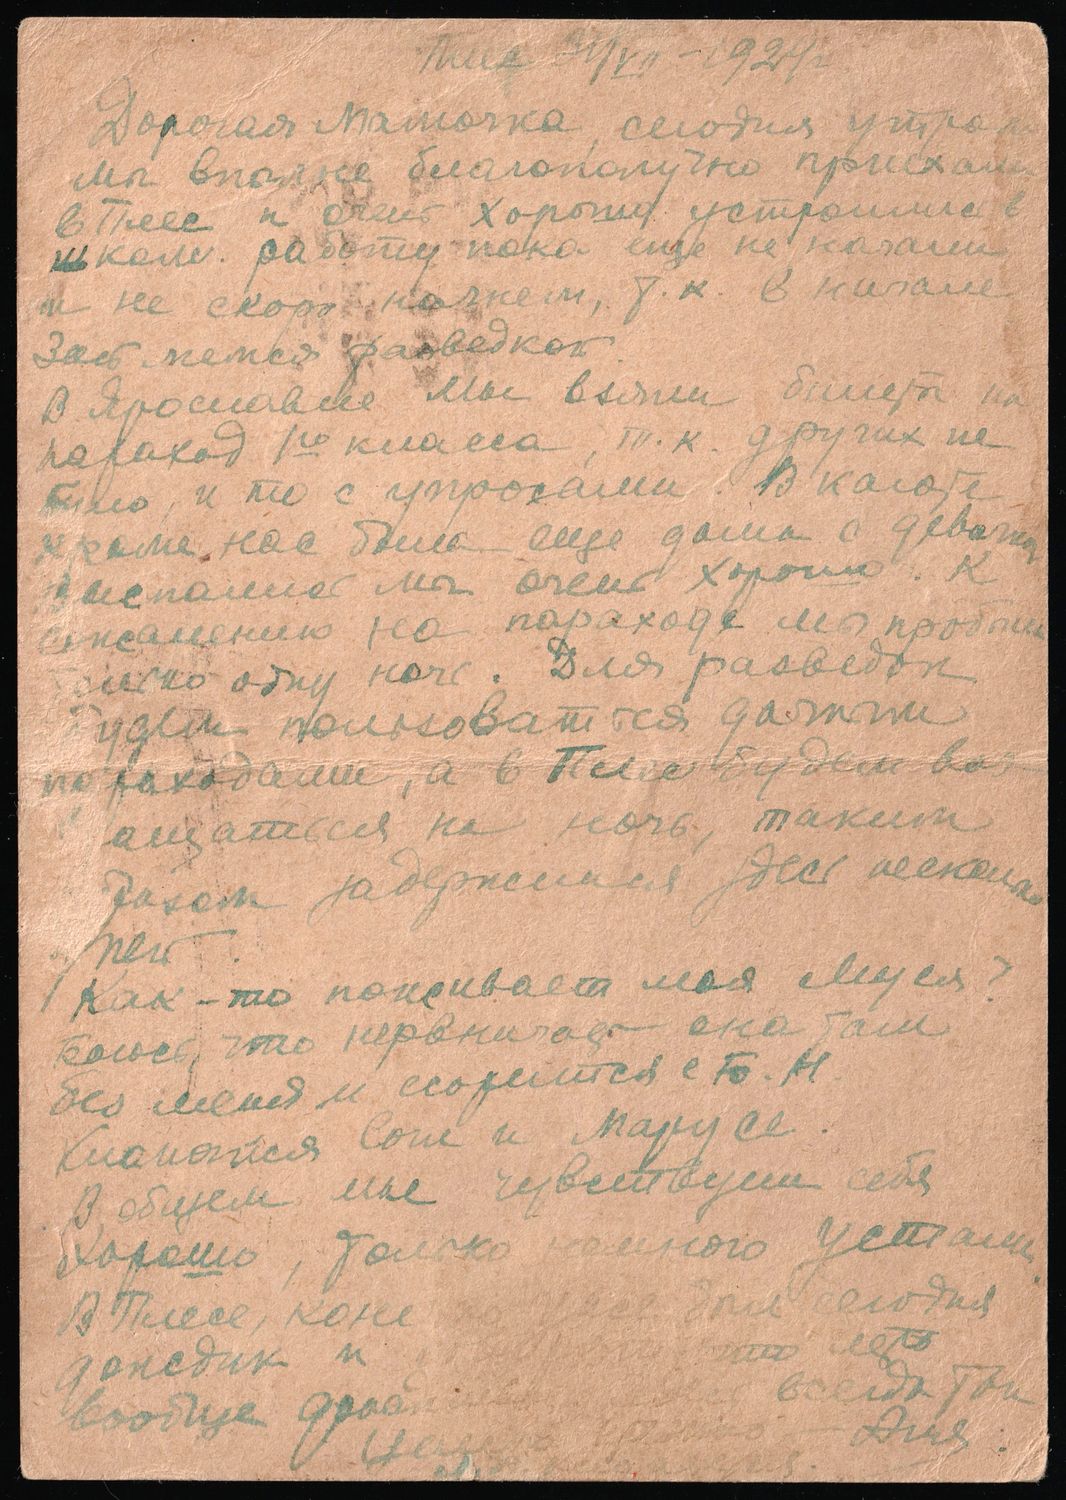 Плес VII - 1927 г.
Дорогая Мамочка, сегодня утром
мы вполне благополучно приехали
в Плес и очень хорошо устроились в
школе. работу пока еще не начали
и не скоро начнем, т.к. в начале
займемся разведкой.
В Ярославле мы взяли билеты на
параход 1го класса, т.к. других не
было, и то с упросами. В каюте
кроме нас была еще дама с девочкой
выспались мы очень хорошо. К
сожалению на параходе мы пробыли
только одну ночь. Для разведок
будем пользоваться дачными
параходами, а в Плес будем воз
ращаться на ночь, таким
образом задержимся здесь несколько
дней.
Как-то поживает моя Муся?
Боюсь, что нервничает она там
без меня и ссорится с Б. Н.
Кланяйся Соне и Марусе.
В общем мы чувствуем себя
хорошо, только немного устали.
В Плесе, коне был сегодня
дождик и что лето
вообще всегда так
Целую крепко - Аня.